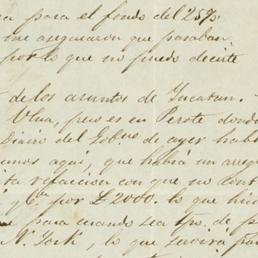 para el fondo del 25%
me aseguraron que pasaban
por lo que no puedo decirte
de los asuntos de Yucatan.
Ulua, pero es en Perote donde
Diario del Gob.no de ayer habl
aqui, que habia un
refaccion con que no cont
y C. por £2000. lo que
para cuando sea tpo. de
N. York, lo que servira par